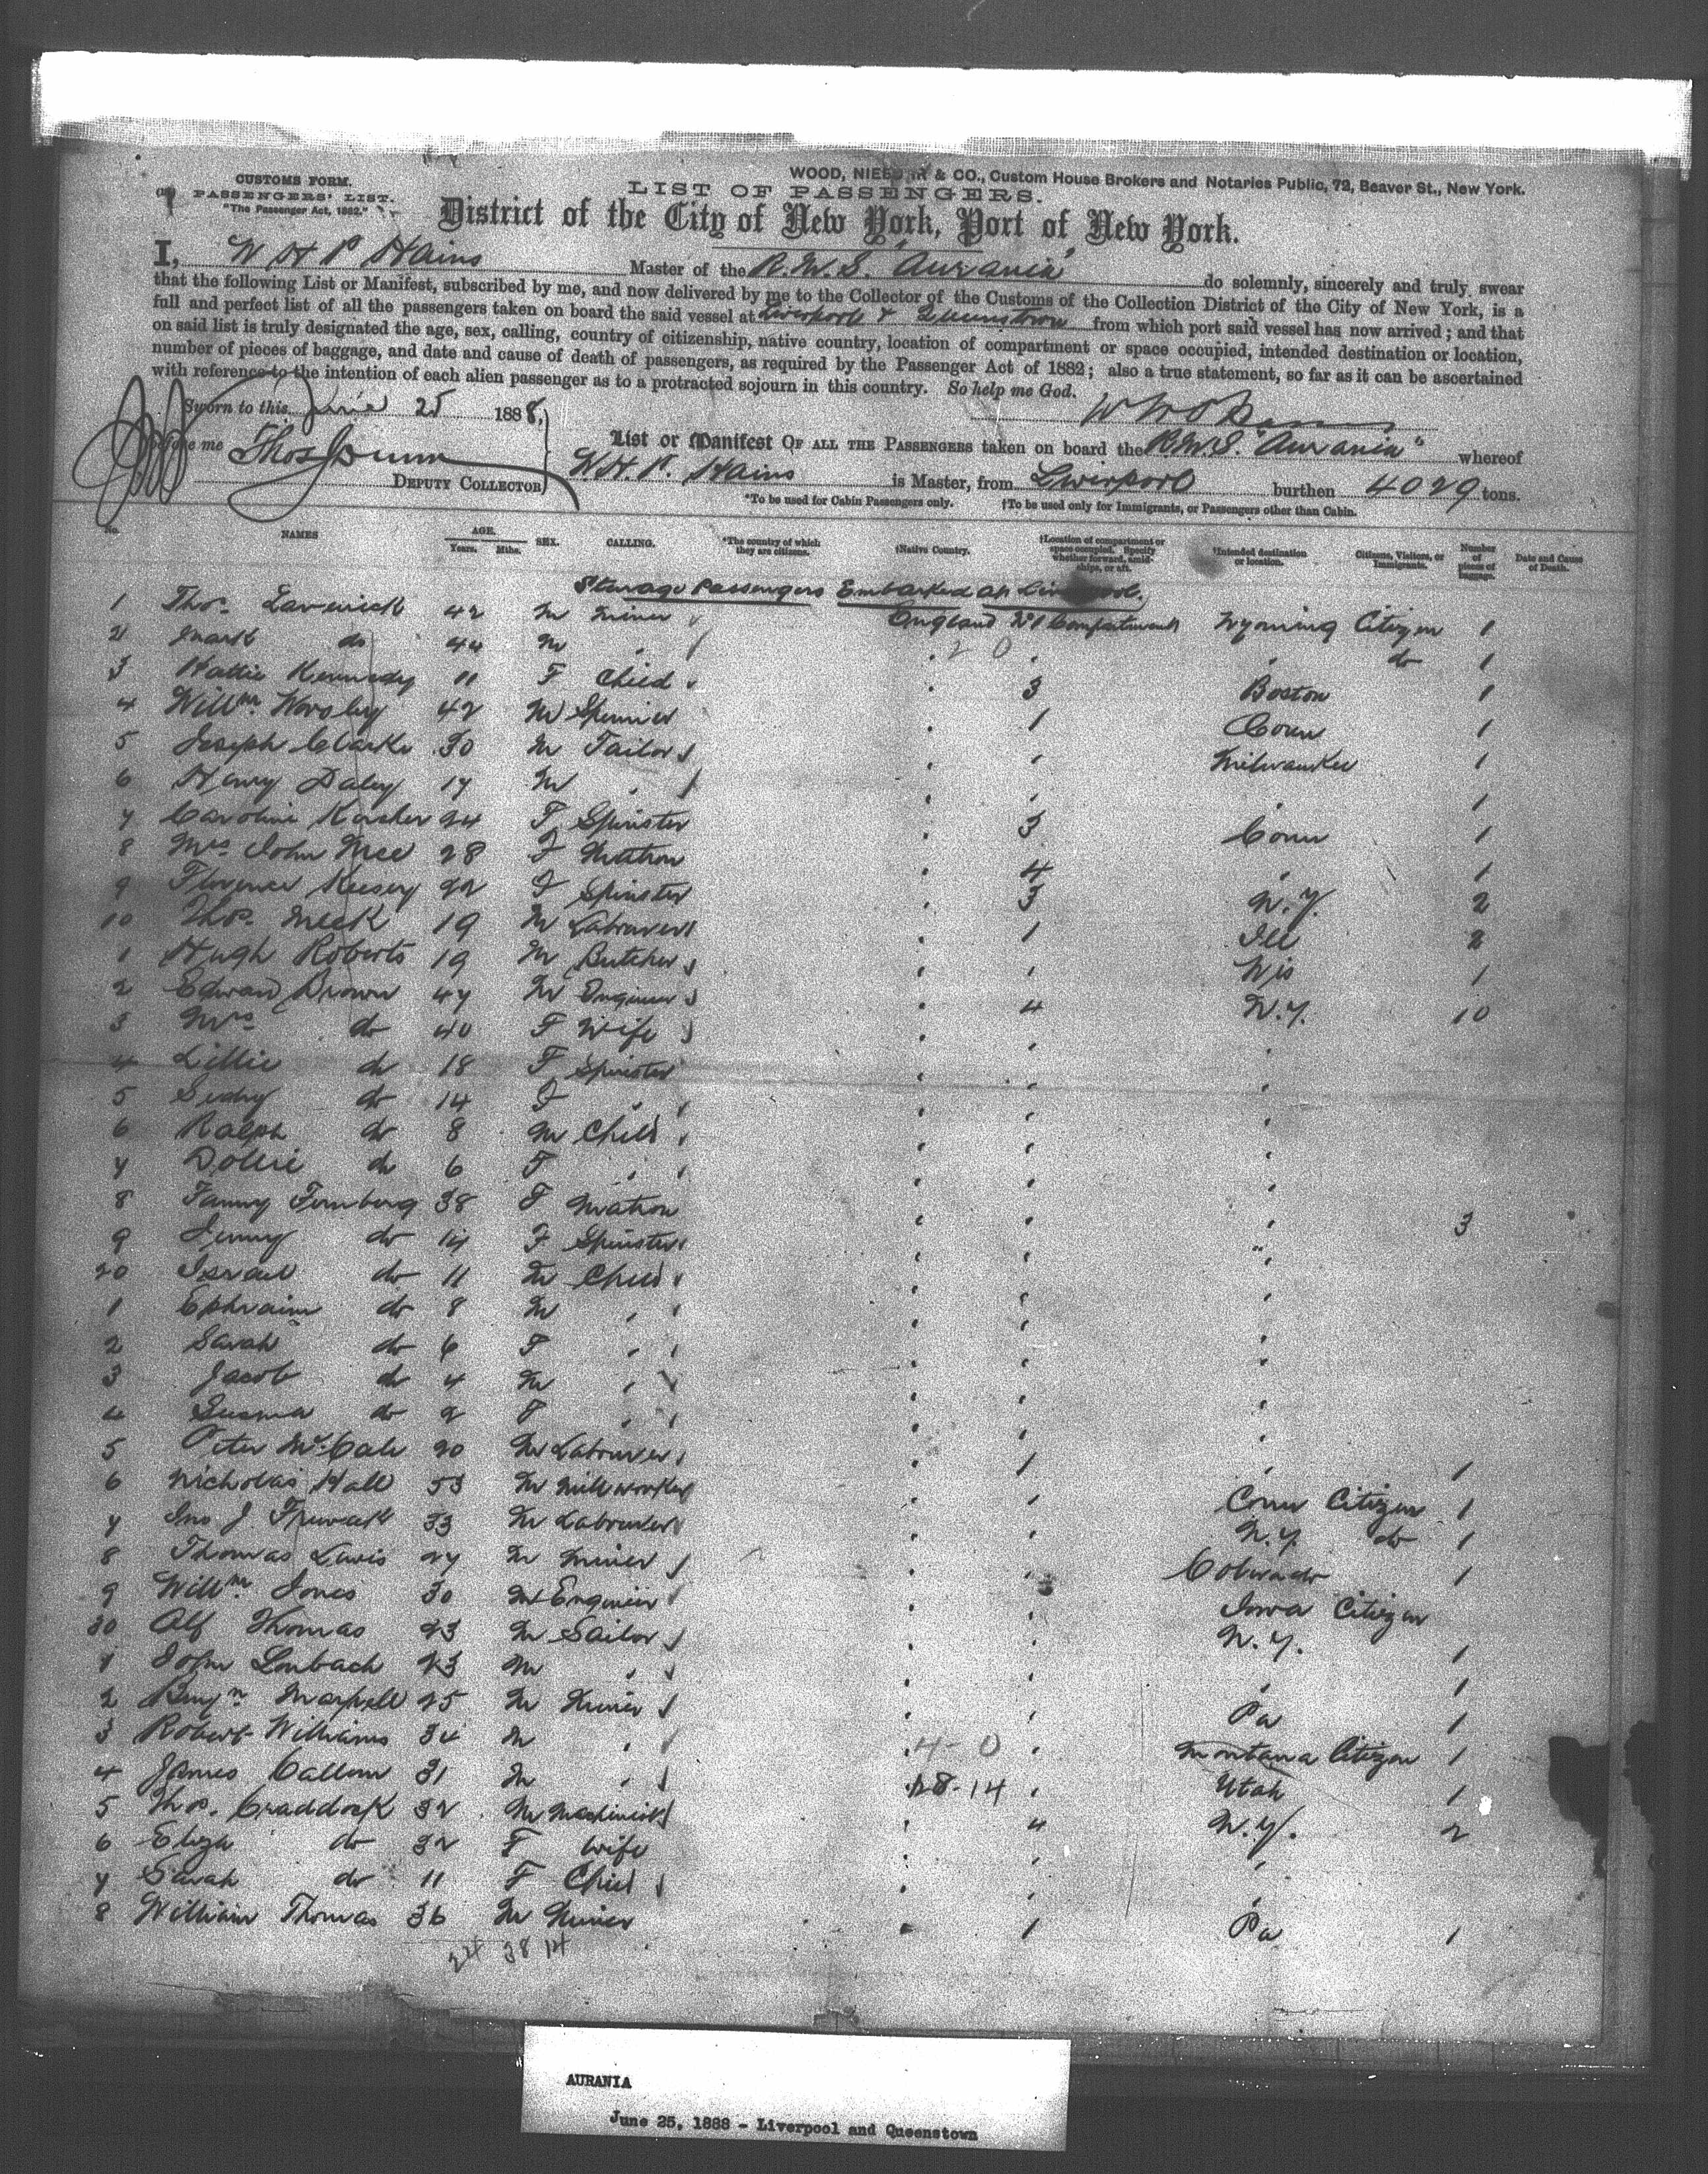 CUSTOMS FORM.
PASSENGERS' LIST.
"The Passenger Act, 1882."
WOOD, & CO., Custom House Brokers and Notaries Public, 72, Beaver St., New York.
LIST OF PASSENGERS.
District of the City of New York, Port of New York.
I, W H P Hains Master of the R.M.S. "Aurania" do solemnly, sincerely and truly swear
that the following List or Manifest, subscribed by me, and now delivered by me to the Collector of the Customs of the Collection District of the City of New York, is a
full and perfect list of all the passengers taken on board the said vessel at Liverpool & Queenstown from which port said vessel has now arrived; and that
on said list is truly designated the age, sex, calling, country of citizenship, native country, location of compartment or space occupied, intended destination or location,
number of pieces of baggage, and date and cause of death of passengers, as required by the Passenger Act of 1882; also a true statement, so far as it can be ascertained
with reference to the intention of each alien passenger as to a protracted sojourn in this country. So help me God.
Sworn to this June 25 1888,
before me Thos Dunn
DEPUTY COLLECTOR
List or Manifest OF ALL THE PASSENGERS taken on board the R.M.S. "Aurania" whereof
W.H.P. Hains is Master, from Liverpool burthen 4029 tons.
*To be used for Cabin Passengers only. †To be used only for Immigrants, or Passengers other than Cabin.
No. NAMES AGE. Years. Mths. SEX. CALLING. *The country of which they are citizens. †Native Country. †Location of compartment or space occupied. Specify whether forward, amidships, or aft. †Intended destination or location. Citizens, Visitors, or Immigrants. Number of pieces of baggage. Date and Cause of Death.
Steerage Passengers Embarked at Liverpool.
1 Thos. Laverick 42 M Miner England No 1 Compartment Wyoming Citizen 1
2 Mark do 44 M " " 2 0 " " do 1
3 Hattie Kennedy 11 F Child " 3 Boston 1
4 Willm. Worsley 42 M Spinner " 1 Conn 1
5 Joseph Clarke 30 M Tailor " " Milwaukee 1
6 Henry Daley 17 M " " " " 1
7 Caroline 24 F Spinster " 3 Conn 1
8 Mrs John 28 F Matron " 4 " 1
9 Florence 22 F Spinster " 3 N.Y. 2
10 Thos. Meek 19 M Labourer " 1 Ill 2
1 Hugh Roberts 19 M Butcher " " Wis 1
2 Edward Brown 47 M Engineer " 4 N.Y. 10
3 Mrs do 40 F Wife " " "
4 Lillie do 18 F Spinster " " "
5 do 14 F " " " "
6 Ralph do 8 M Child " " "
7 Dollie do 6 F " " " "
8 Fanny 38 F Matron " " " 3
9 Jenny do 14 F Spinster " " "
20 Israel do 11 M Child " " "
1 Ephraim do 8 M " " " "
2 Sarah do 6 F " " " "
3 Jacob do 4 M " " " "
4 do 2 F " " " "
5 Peter McCale 20 M Labourer " 1 " 1
6 Nicholas Hall 53 M Millworker " " Conn Citizen 1
7 Jno J 33 M Labourer " " N.Y. do 1
8 Thomas Lewis 27 M Miner " " Colorado 1
9 Willm. Jones 30 M Engineer " " Iowa Citizen
30 Alf Thomas 23 M Sailor " " N.Y. 1
1 John 23 M " " " " 1
2 Benjn. 25 M Miner " " Pa 1
3 Robert Williams 34 M " " 4-0 " Montana Citizen 1
4 James Callum 31 M " 28-14 " Utah 1
5 Thos. Craddock 32 M Machinist " 4 N.Y. 2
6 Eliza do 32 F Wife " " "
7 Sarah do 11 F Child " " "
8 William Thomas 36 M Miner " 1 Pa 1
24 38 14
AURANIA
June 25, 1888 - Liverpool and Queenstown